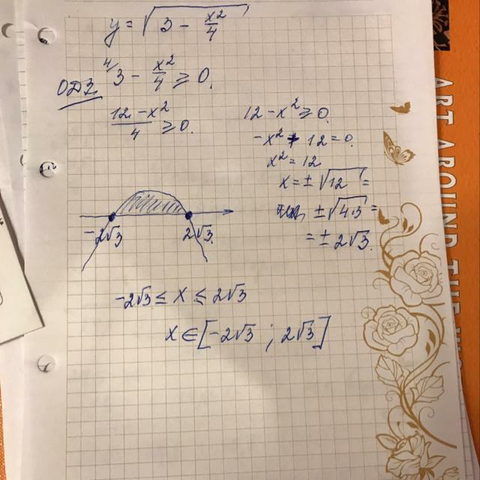 y = √(3 - x²/4)
ОДЗ. ⁴/ 3 - x²/4 ≥ 0.
(12 - x²)/4 ≥ 0.
12 - x² ≥ 0.
-x² + 12 = 0.
x² = 12
x = ± √12 =
± √(4·3) =
= ± 2√3.
-2√3 2√3.
-2√3 ≤ x ≤ 2√3
x ∈ [-2√3 ; 2√3]
ART AROUND THE